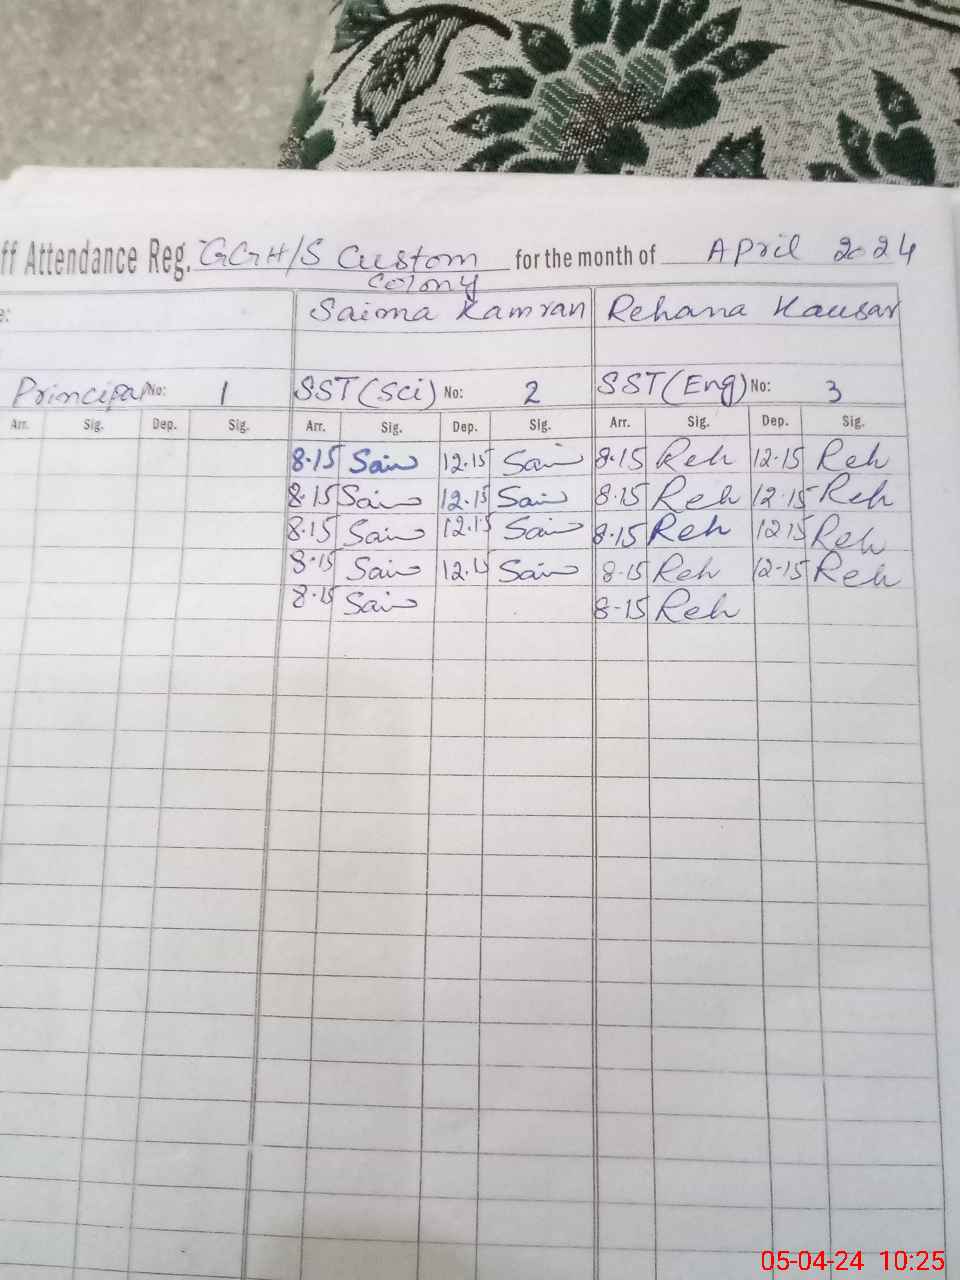 ff Attendance Reg. GGH/S Custom Colony for the month of April 2024
e: Saima Kamran Rehana Kausar
Principal No: 1 SST(Sci) No: 2 SST(Eng) No: 3
Arr. Sig. Dep. Sig. Arr. Sig. Dep. Sig. Arr. Sig. Dep. Sig.
8.15 Sai 12.15 Sai 8.15 Reh 12.15 Reh
8.15 Sai 12.15 Sai 8.15 Reh 12.15 Reh
8.15 Sai 12.15 Sai 8.15 Reh 12.15 Reh
8.15 Sai 12.15 Sai 8.15 Reh 12.15 Reh
8.15 Sai 8.15 Reh
05-04-24 10:25